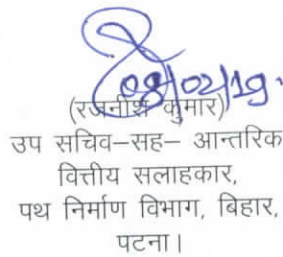 08/02/19.
(रजनीश कुमार)
उप सचिव–सह– आन्तरिक
वित्तीय सलाहकार,
पथ निर्माण विभाग, बिहार,
पटना।